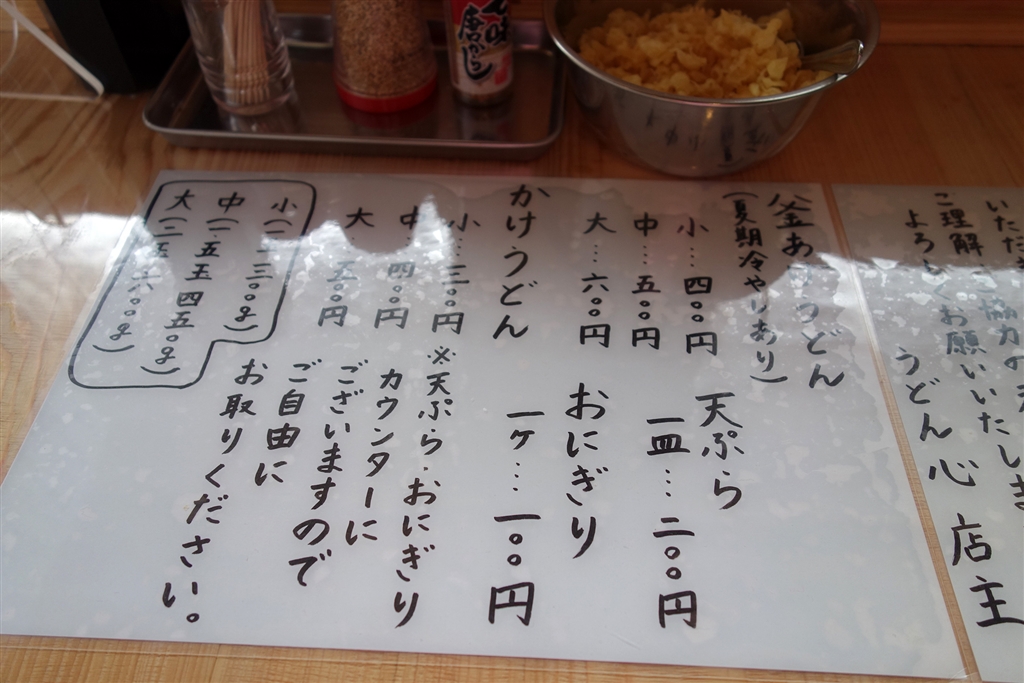 唐がらし
いただき
ご理解ご協力の
よろしくお願いいたしま
うどん 心 店主
釜あげうどん
(夏期冷やりあり)
小…四〇〇円
中…五〇〇円
大…六〇〇円
かけうどん
小…三〇〇円
中…四〇〇円
大…五〇〇円
小(一 三〇〇g)
中(一.五玉 四五〇g)
大(二玉 六〇〇g)
天ぷら
一皿…二〇〇円
おにぎり
一ケ…一〇〇円
※天ぷら・おにぎり
カウンターに
ございますので
ご自由に
お取りください。